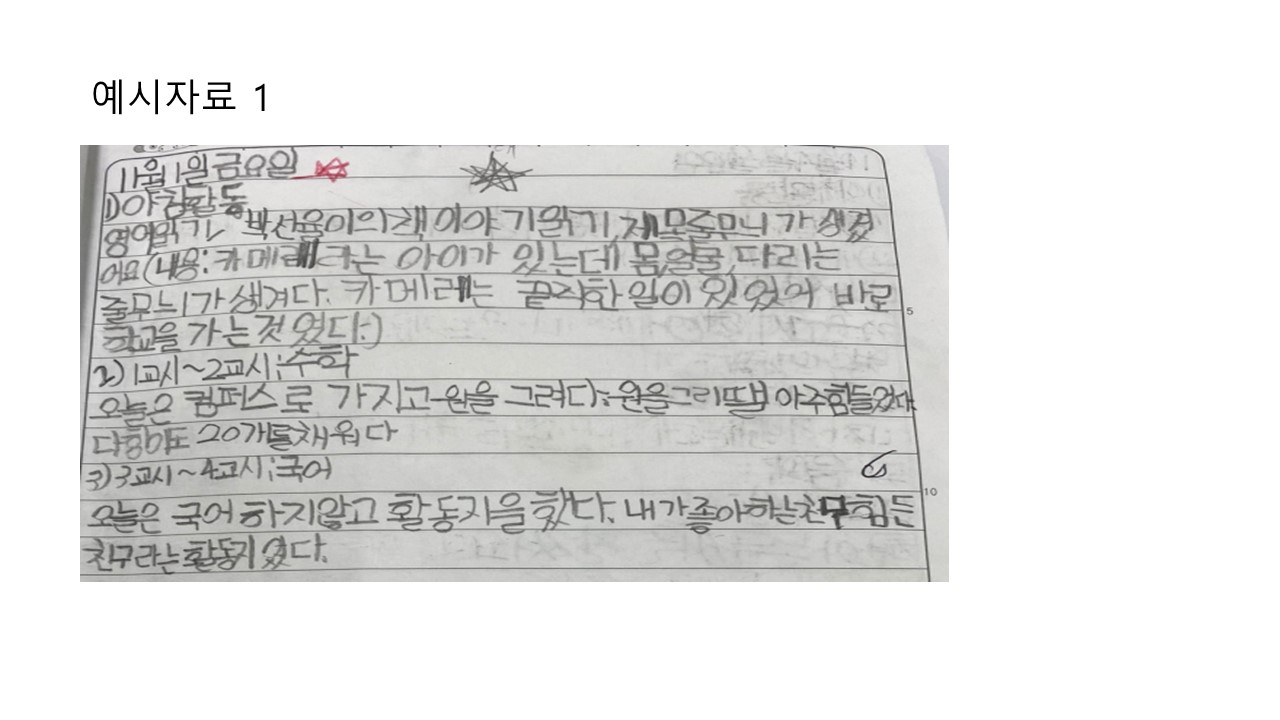 예시자료 1
11월 1일 금요일
1) 아침활동
영어읽기, 박선율이의 책 이야기읽기, 제목줄무늬가 생겼
어요(내용: 카메라는 아이가 있는데 몸,얼굴,다리는
줄무늬가 생겨다. 카메라는 끝직한 일이 있었어 바로
학교을 가는것 였다.)
2) 1교시~2교시;수학
오늘은 컴퍼스로 가지고 원을 그려다; 원을그리때 아주힘들었다.
다행이도 20개를채워다
3) 3교시~4교시;국어
오늘은 국어 하지않고 활동지을 했다. 내가좋아하는친구힘든
친구라는활동지였다.
5
10